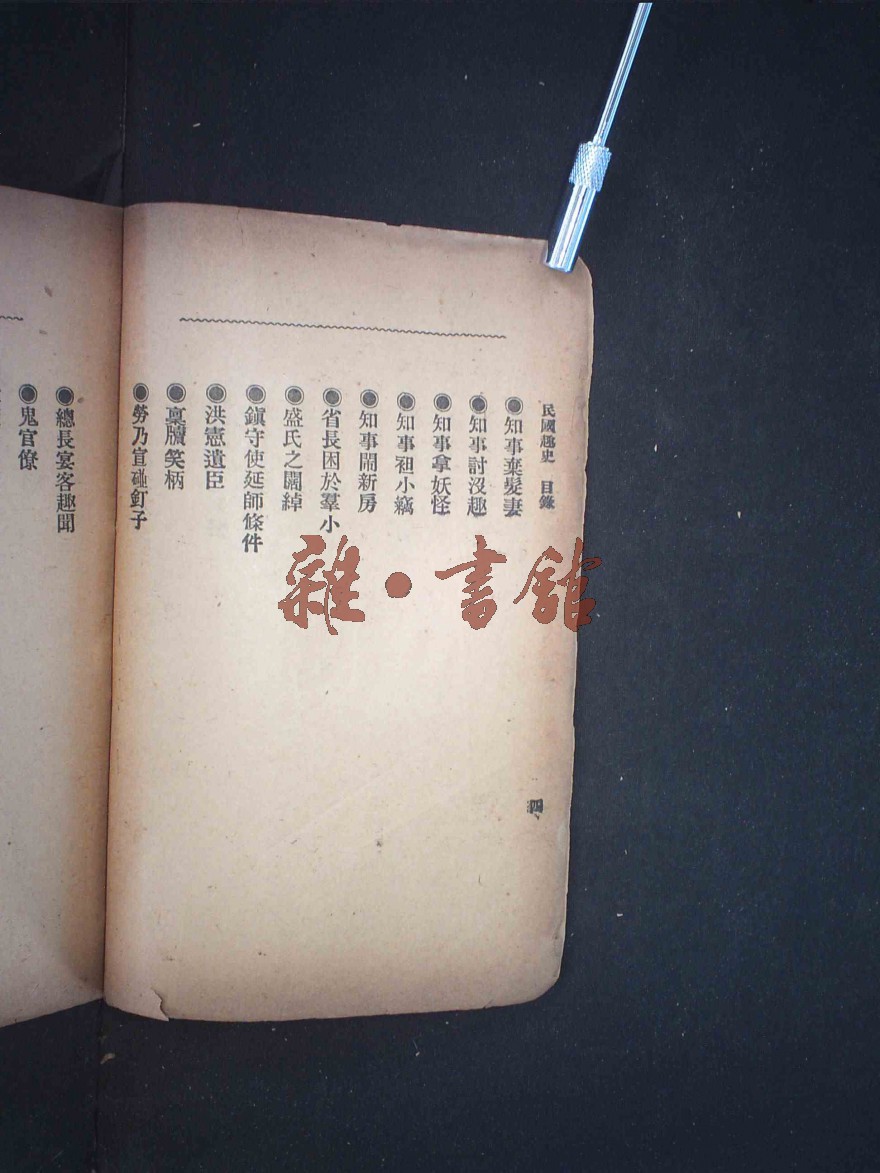 民國趣史　目錄
◉知事棄髮妻
◉知事討沒趣
◉知事拿妖怪
◉知事袒小竊
◉知事鬧新房
◉省長困於羣小
◉盛氏之闊綽
◉鎭守使延師條件
◉洪憲遺臣
◉稟牘笑柄
◉勞乃宣碰釘子
四
◉總長宴客趣聞
◉鬼官僚
雜·書館